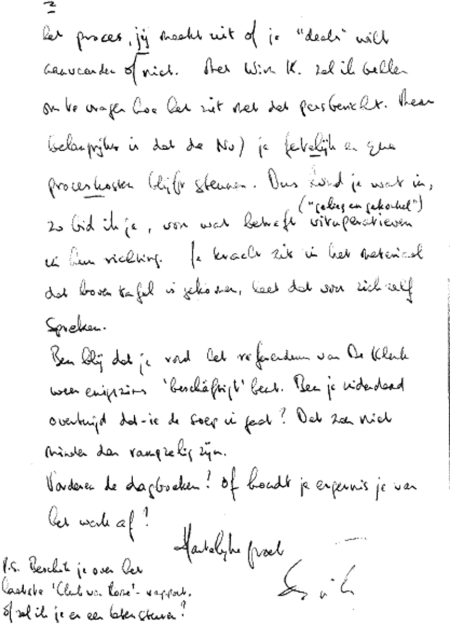 2
het proces, jij maakt uit of je "deals" wilt
aanvaarden of niet. Met Wim K. zal ik bellen
om te vragen hoe het zit met dat persbericht. Meer
belangrijks is dat de NVJ je feitelijk en qua
proceskosten blijft steunen. Dus houd je wat in,
zo bid ik je, voor wat betreft vituperatieven
("gelieg en gekonkel")
in hun richting. Je kracht zit in het materiaal
dat boven tafel is gekomen, laat dat voor zich zelf
spreken.
Ben blij dat je rond het referendum van De Klerk
weer enigszins 'beschäftigt' bent. Ben je inderdaad
overtuigd dat-ie de soep in gaat? Dat zou niet
minder dan rampzalig zijn.
Vorderen de dagboeken? Of houdt je ergernis je van
het werk af?
Hartelijke groet
P.S. Beschik je over het
laatste 'Club van Rome'-rapport.
Of zal ik je er een laten sturen?